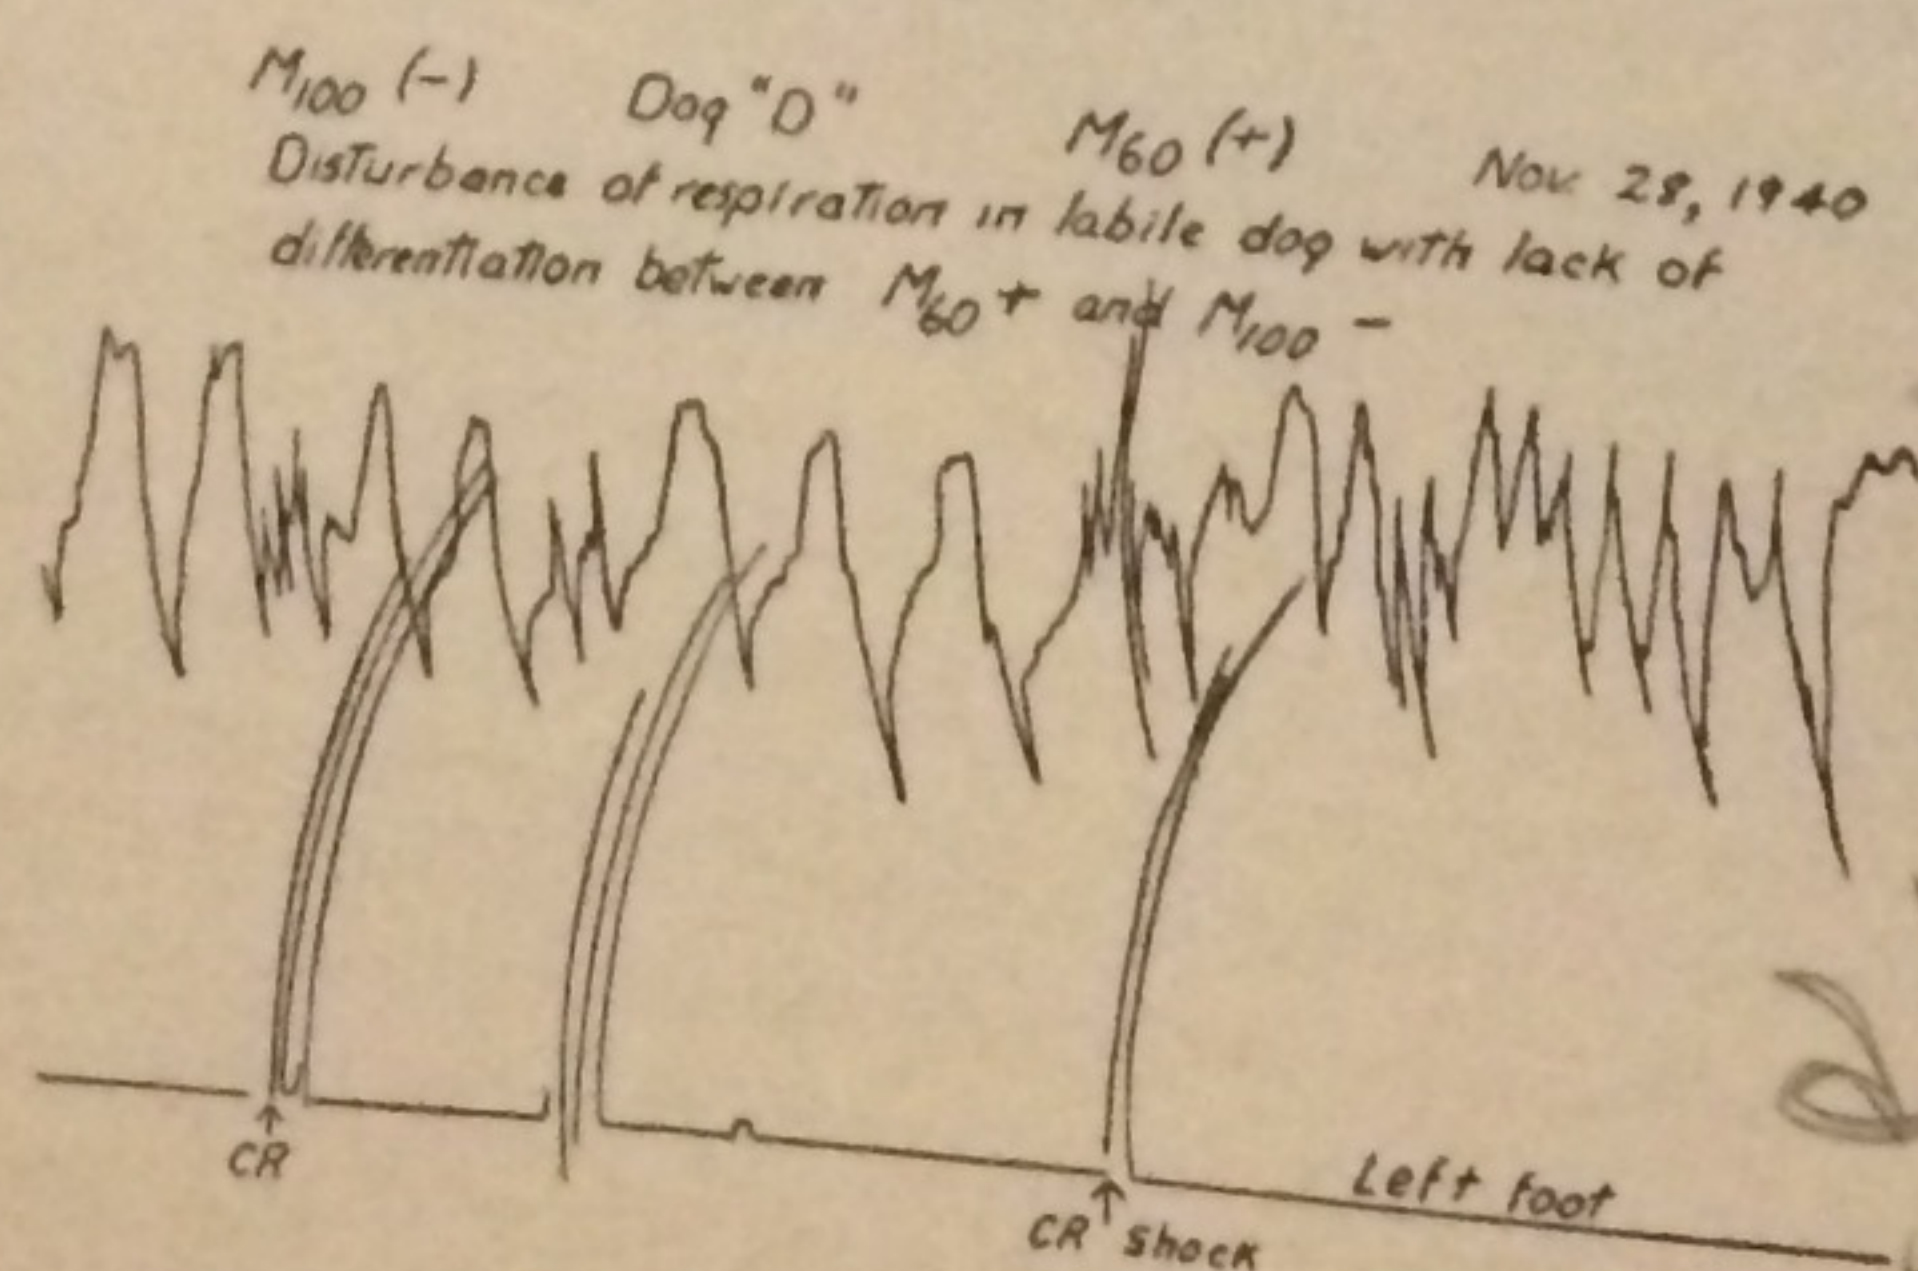 M100 (-) Dog "D" M60 (+) Nov. 28, 1940
Disturbance of respiration in labile dog with lack of
differentiation between M60 + and M100 -
CR
CR shock
Left foot